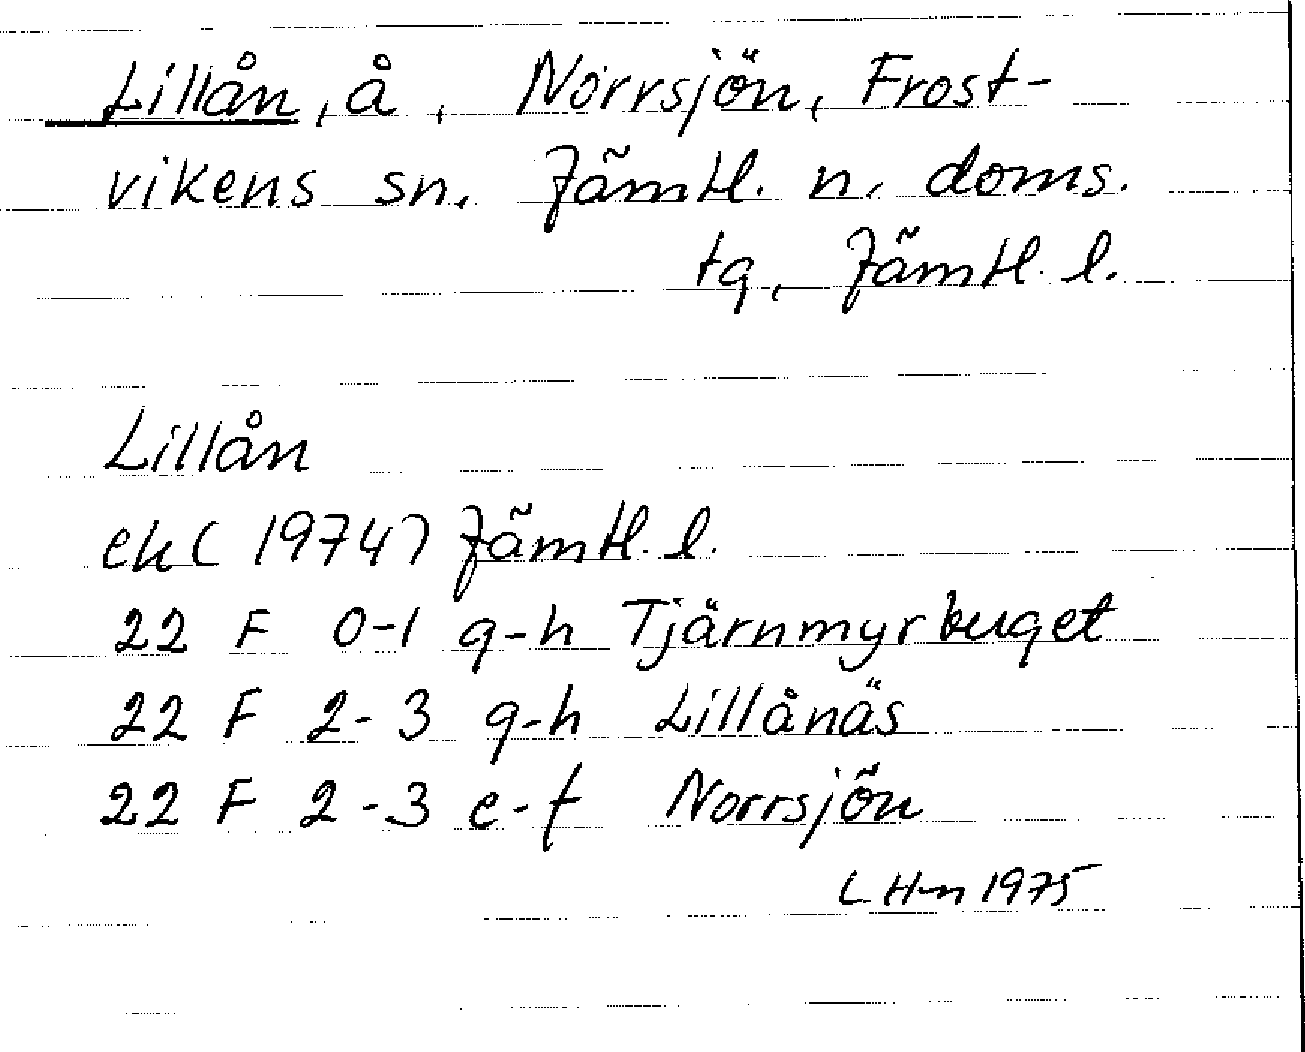 Lillån, å, Norrsjön, Frost-
vikens sn. Jämtl. n. doms.
tg, Jämtl. l.
Lillån
ek (1974) Jämtl. l.
22 F 0-1 g-h Tjärnmyrbuget
22 F 2-3 g-h Lillånäs
22 F 2-3 e-f Norrsjön
L H-n 1975